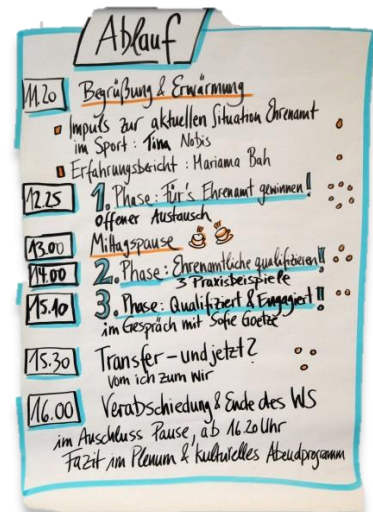 Ablauf
11.20 Begrüßung & Erwärmung
Impuls zur aktuellen Situation Ehrenamt
im Sport: Tina Nobis
Erfahrungsbericht: Mariama Bah
12.25 1. Phase: Für's Ehrenamt gewinnen!
Offener Austausch
13.00 Mittagspause
14.00 2. Phase: Ehrenamtliche qualifizieren!!
3 Praxisbeispiele
15.10 3. Phase: Qualifiziert & Engagiert!!
im Gespräch mit Sofie Goetze
15.30 Transfer – und jetzt?
vom ich zum wir
16.00 Verabschiedung & Ende des WS
im Anschluss Pause, ab 16.20 Uhr
Fazit im Plenum & kulturelles Abendprogramm